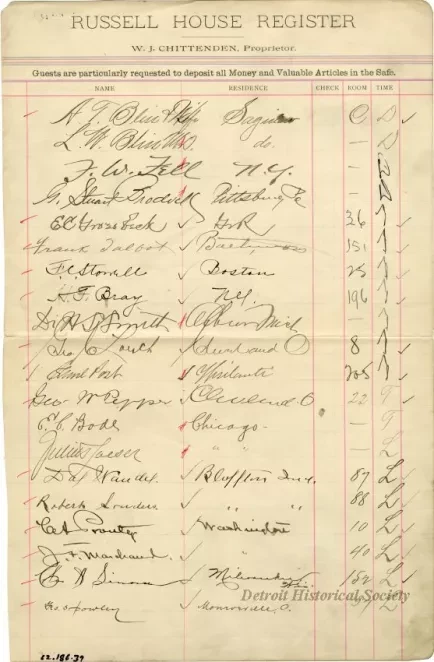 RUSSELL HOUSE REGISTER
W. J. CHITTENDEN, Proprietor.
Guests are particularly requested to deposit all Money and Valuable Articles in the Safe.
NAME RESIDENCE CHECK ROOM TIME
A. T. Bliss Saginaw C D
L. W. Bliss do. — D
F. W. Fell N.Y. —
Stuart Pittsburg Pa —
E C Grosbeck GR 36
Frank Talbot 151
F. C. Stowell Boston 25
H. F. Bray N.Y. 196
Dr H Smith Albion Mich —
Geo South Cleveland O 8
Post Ypsilanti 205
Geo W Pepper Cleveland O 22 T
E. C. Bode Chicago - — T
Julius " " — L
Wandel Bluffton Ind. 87 L
Robert Sowders " " 88 L
Prouty Washington 10 L
J. F. Marchand. " 40 L
Simon Milwaukee Wis. 152 L
Monroeville O. L
Detroit Historical Society
22.186.37